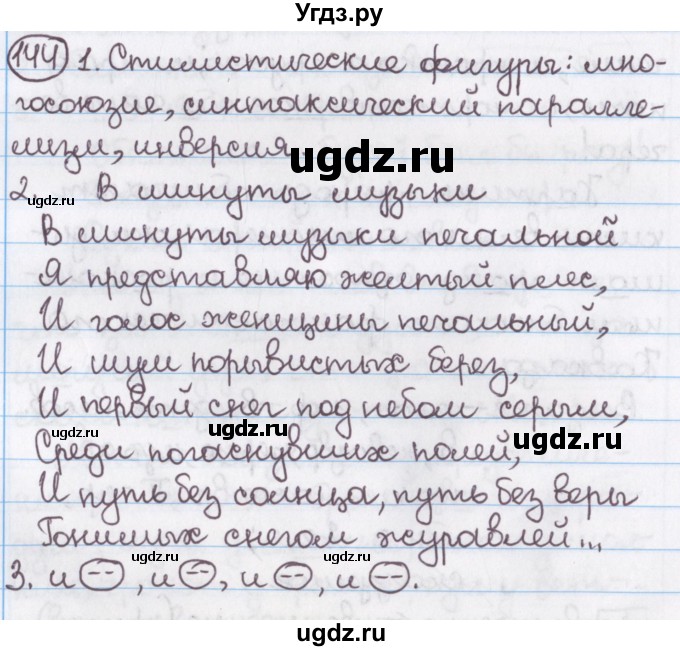 Угдз.ру
144 1. Стилистические фигуры: мно-
госоюзие, синтаксический паралле-
лизм, инверсия
ugdz.ru
2. В минуты музыки
ugdz.ru
В минуты музыки печальной
Я представляю желтый плес,
И голос женщины печальный,
И шум порывистых берез,
И первый снег под небом серым,
ugdz.ru ugdz.ru ugdz.ru
Среди погаснувших полей,
И путь без солнца, путь без веры
Гонимых снегом журавлей...
ugdz.ru ugdz.ru
3. и (--), и (--), и (-), и (--).
ugdz.ru